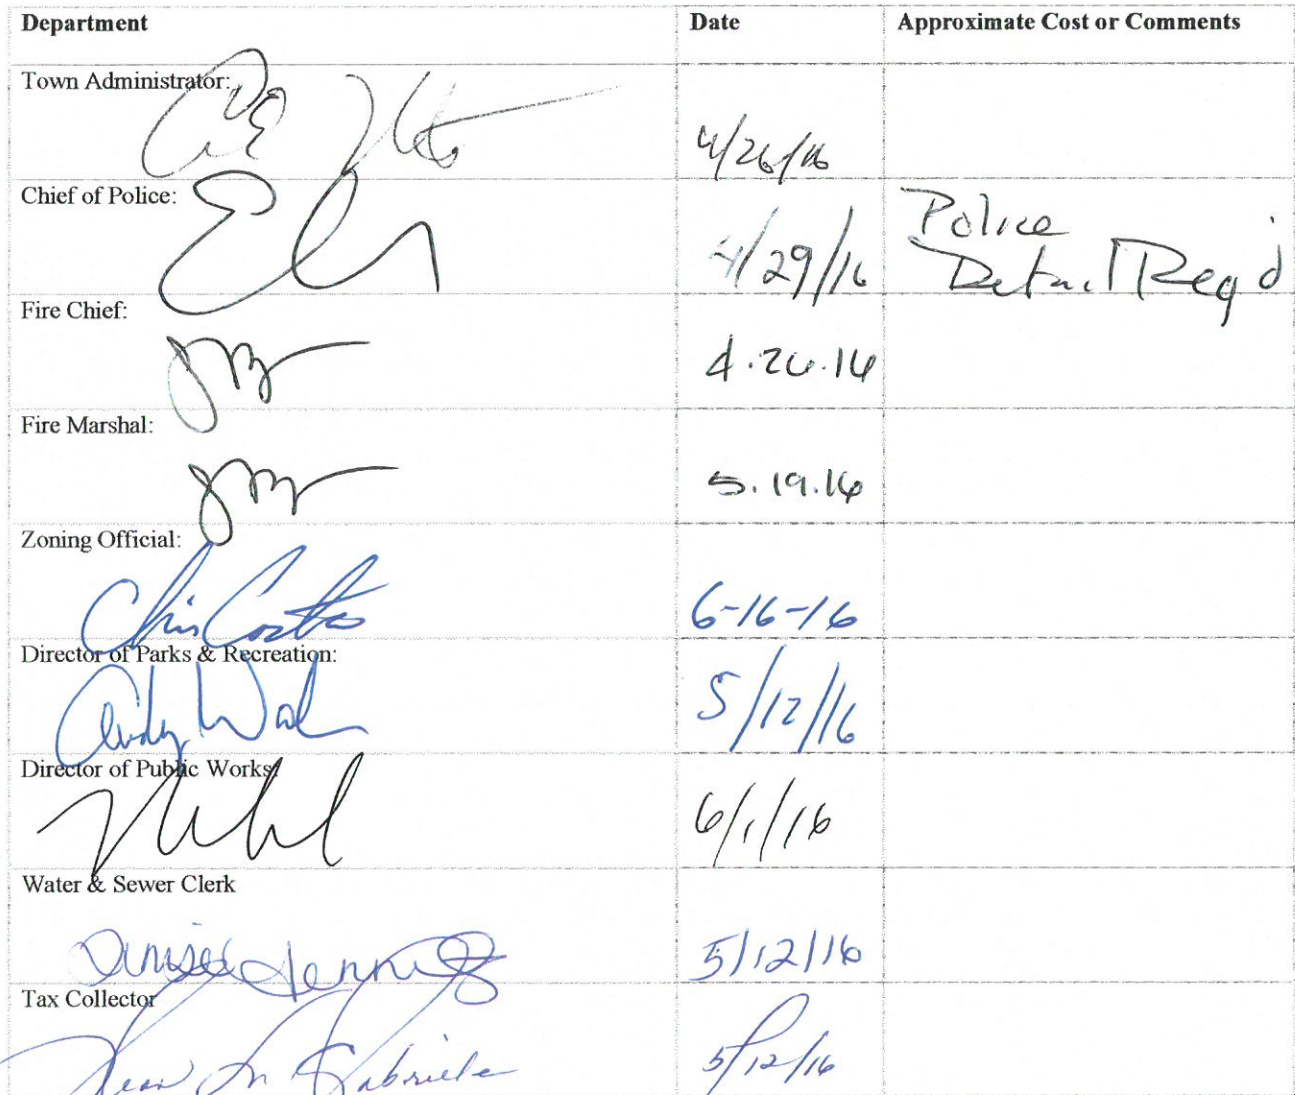 Department Date Approximate Cost or Comments
Town Administrator:
4/26/16
Chief of Police:
4/29/16 Police
Detail Req'd
Fire Chief:
4.26.16
Fire Marshal:
5.19.16
Zoning Official:
Chris 6-16-16
Director of Parks & Recreation:
Andy 5/12/16
Director of Public Works:
6/1/16
Water & Sewer Clerk
Denise Jennings 5/12/16
Tax Collector
5/12/16